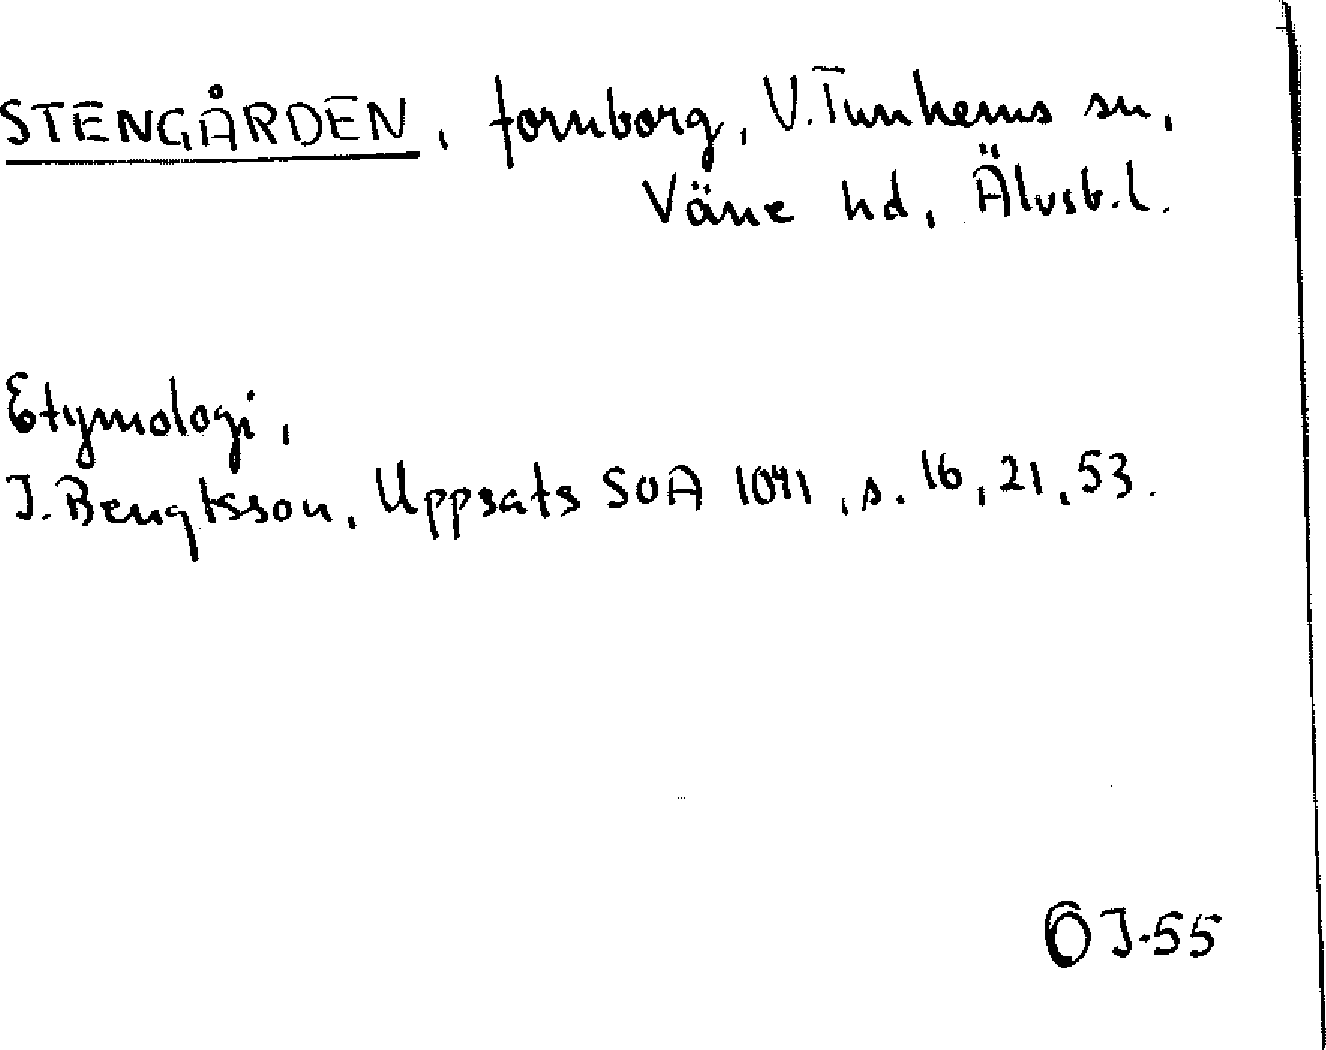 STENGÅRDEN, fornborg, V. Tunhems sn,
Väne hd, Älvsb.l.
Etymologi,
J. Bengtsson, Uppsats SOA 1041, s. 16, 21, 53.
OJ-55